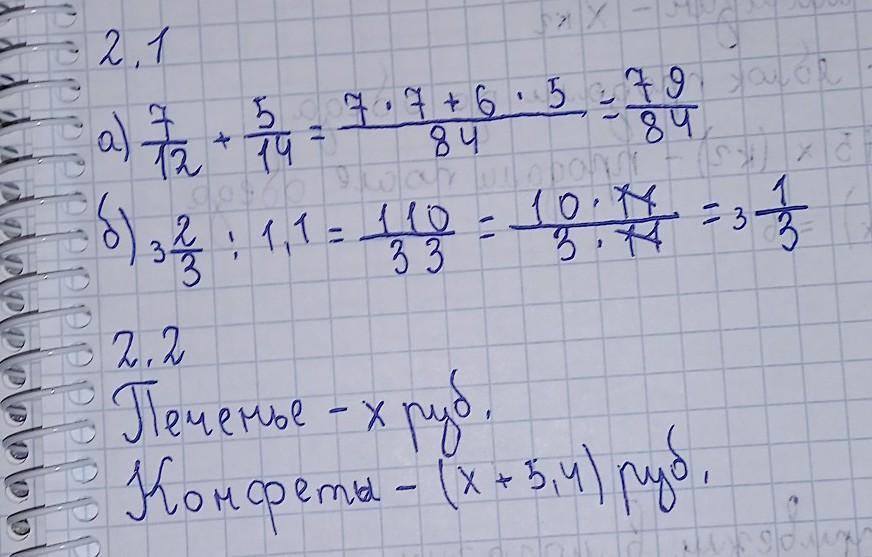 2.1
а) 7/12 + 5/14 = (7·7+6·5)/84 = 79/84
б) 3 2/3 : 1,1 = 110/33 = (10·11)/(3·11) = 3 1/3
2.2
Печенье – х руб.
Конфеты – (х + 5,4) руб.